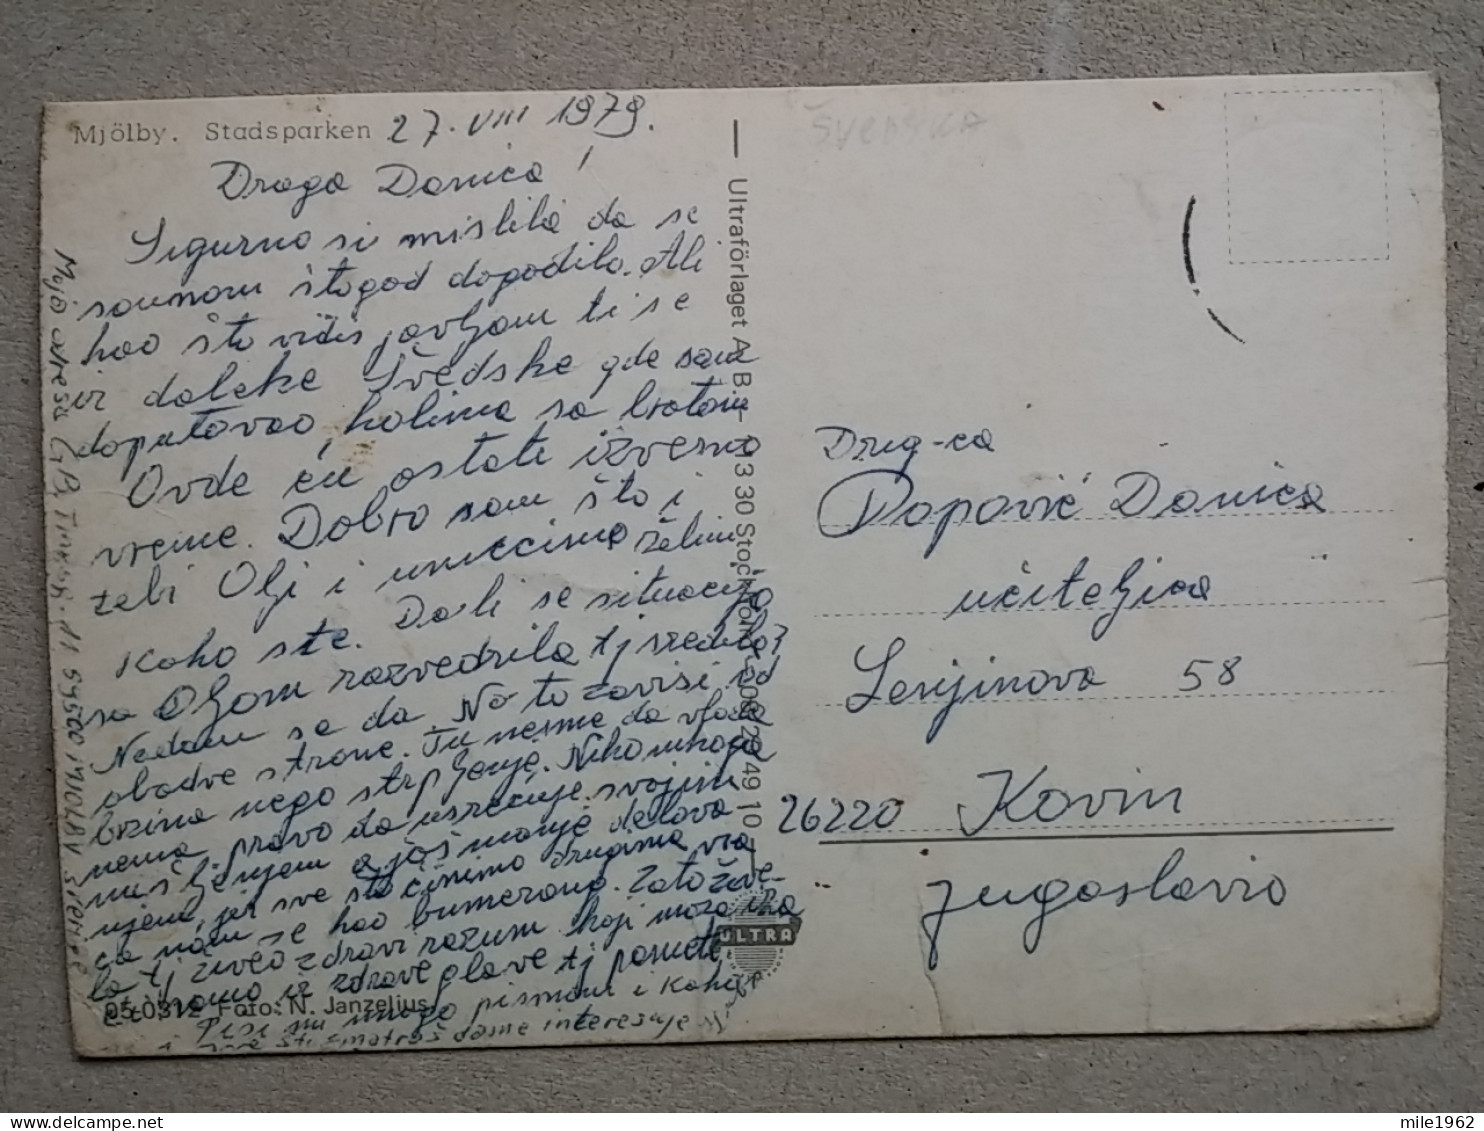 Mjölby. Stadsparken
27. VIII 1979.
Draga Danica!
Sigurno si mislila da se
samnom štogod dopodilo. Ali
kao što vidiš javljam ti se
iz daleke Švedske gde sam
doputovao kolima sa bratom
Ovde ću ostati izvesno
vreme. Dobro sam što i
tebi Olji i unucima želim
Kako ste. Dali se situacija
sa Oljom razvedrila tj sredila?
Nadam se da. No to zavisi od
obadve strane. Tu nesme da vlada
brzina nego strpljenje. Niko nnoga
nema pravo da usrećuje svojim
mišljenjem a još manje delova
njem, jer sve što činimo drugima vra
ća nam se kao bumerang. Zato žive
la tj živeo zdravi razum koji moza
iz zdrave glave tj pameti
Piši mi mnogo pismom i kako
i sve što smatraš da me interesuje
Moja adresa
59500 MJÖLBY
05 0312 Foto: N. Janzelius
Ultraförlaget A.B.
ULTRA
ŠVEDSKA
Drug-ca
Popović Danica
učiteljica
Lenjinova 58
26220 Kovin
Jugoslavia
mile1962